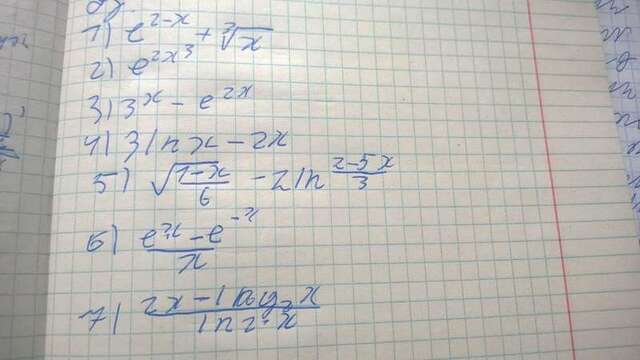 1) e^{2-x} + \sqrt[3]{x}
2) e^{2x^3}
3) 3^x - e^{2x}
4) 3 ln x - 2x
5) \sqrt{\frac{1-x}{6}} - 2 ln \frac{2-5x}{3}
6) \frac{e^x - e^{-x}}{x}
7) \frac{2x - \log_2 x}{ln 2 \cdot x}